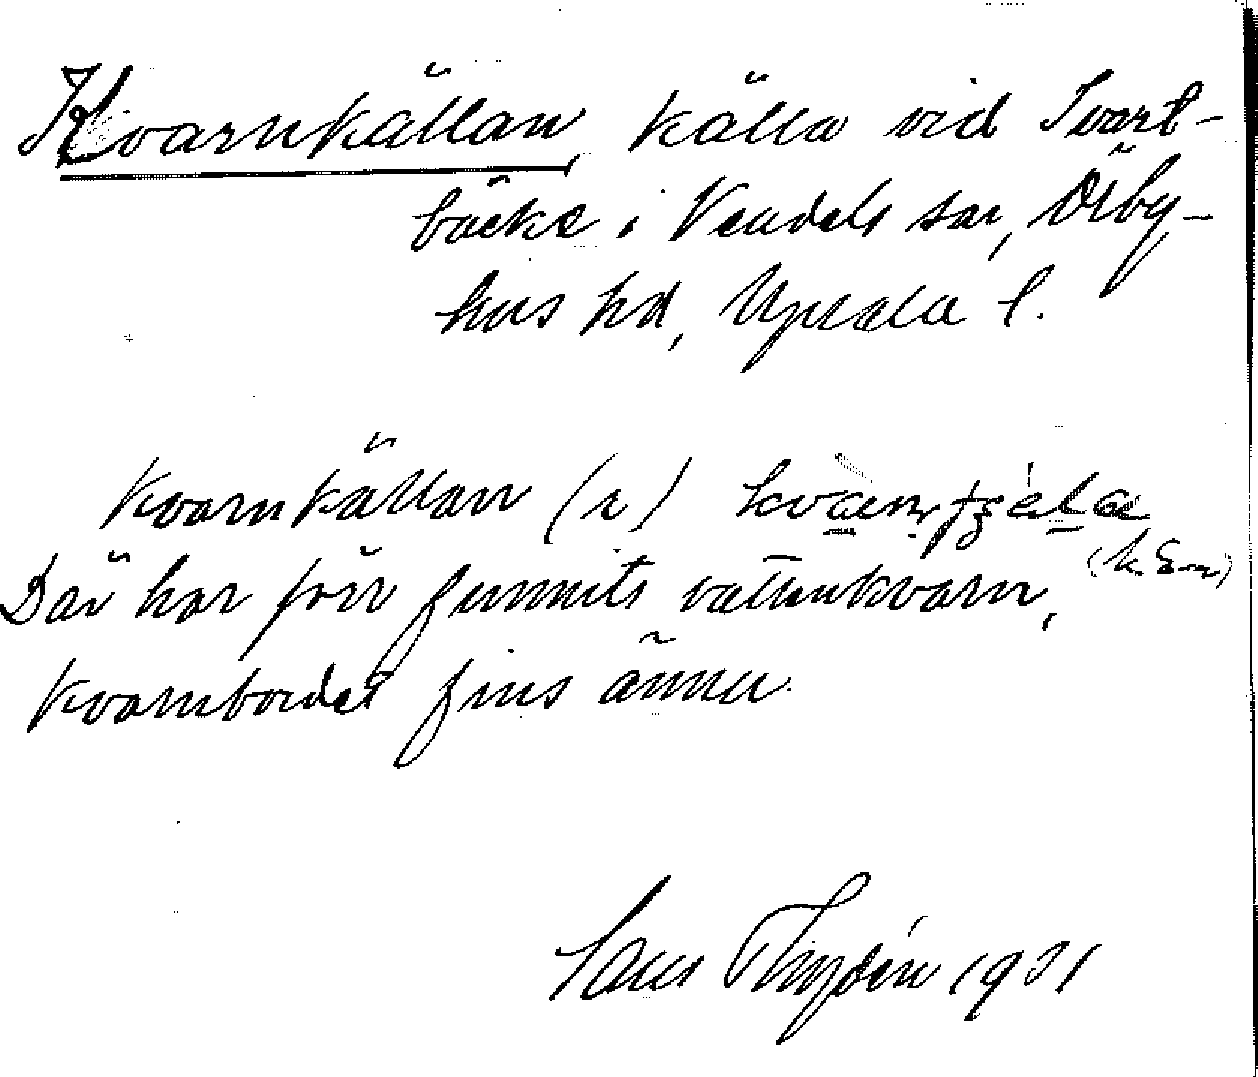 Kvarnkällan, källa vid Svart-
bäcke i Vendels sn, Örby-
hus hd, Upsala l.
Kvarnkällan (r)
Där har förr funnits vattenkvarn,
Kvarnbordet fins ännu.
1931